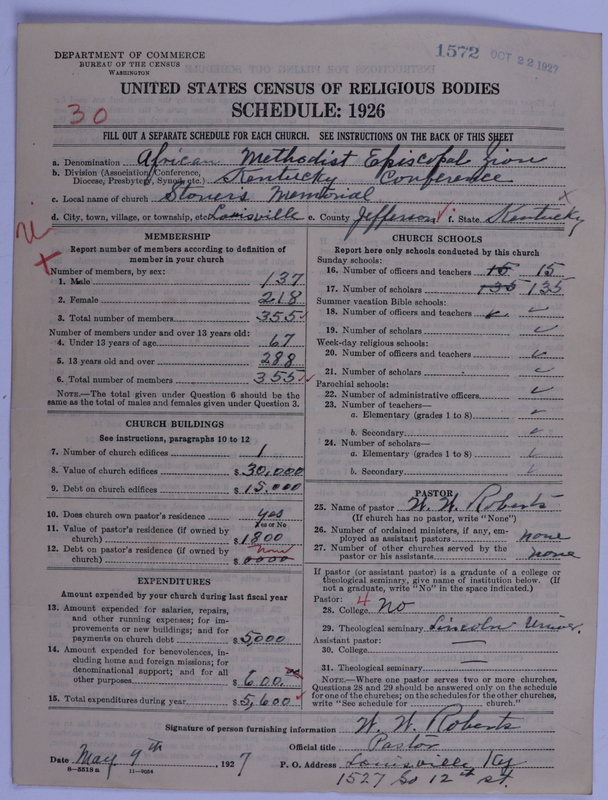 1572 OCT 22 1927
DEPARTMENT OF COMMERCE
BUREAU OF THE CENSUS
WASHINGTON
UNITED STATES CENSUS OF RELIGIOUS BODIES
SCHEDULE: 1926
30
FILL OUT A SEPARATE SCHEDULE FOR EACH CHURCH. SEE INSTRUCTIONS ON THE BACK OF THIS SHEET
a. Denomination African Methodist Episcopal Zion
b. Division (Association, Conference, Diocese, Presbytery, Synod, etc.) Kentucky Conference
c. Local name of church Stoners Memorial
d. City, town, village, or township, etc. Louisville e. County Jefferson ✓ f. State Kentucky x
MEMBERSHIP
Report number of members according to definition of
member in your church
Number of members, by sex:
1. Male 137
2. Female 218
3. Total number of members 355 ✓
Number of members under and over 13 years old:
4. Under 13 years of age 67
5. 13 years old and over 288
6. Total number of members 355 ✓
NOTE.—The total given under Question 6 should be
the same as the total of males and females given under Question 3.
CHURCH BUILDINGS
See instructions, paragraphs 10 to 12
7. Number of church edifices 1
8. Value of church edifices $30,000
9. Debt on church edifices $15.000
10. Does church own pastor's residence yes
Yes or No
11. Value of pastor's residence (if owned by
church) $1800
12. Debt on pastor's residence (if owned by none
church) $0000
EXPENDITURES
Amount expended by your church during last fiscal year
13. Amount expended for salaries, repairs,
and other running expenses; for im-
provements or new buildings; and for
payments on church debt $5000
14. Amount expended for benevolences, in-
cluding home and foreign missions; for
denominational support; and for all
other purposes $600.
15. Total expenditures during year $5,600 ✓
CHURCH SCHOOLS
Report here only schools conducted by this church
Sunday schools:
16. Number of officers and teachers 15 15
17. Number of scholars 135 135
Summer vacation Bible schools:
18. Number of officers and teachers ✓
19. Number of scholars ✓
Week-day religious schools:
20. Number of officers and teachers ✓
21. Number of scholars ✓
Parochial schools:
22. Number of administrative officers ✓
23. Number of teachers—
a. Elementary (grades 1 to 8) ✓
b. Secondary ✓
24. Number of scholars—
a. Elementary (grades 1 to 8) ✓
b. Secondary ✓
PASTOR
25. Name of pastor W. W. Roberts
(If church has no pastor, write "None")
26. Number of ordained ministers, if any, em-
ployed as assistant pastors none
27. Number of other churches served by the
pastor or his assistants none
If pastor (or assistant pastor) is a graduate of a college or
theological seminary, give name of institution below. (If
not a graduate, write "No" in the space indicated.)
Pastor: 4
28. College No
29. Theological seminary Lincoln Univer.
Assistant pastor:
30. College
31. Theological seminary
NOTE.—Where one pastor serves two or more churches,
Questions 28 and 29 should be answered only on the schedule
for one of the churches; on the schedules for the other churches,
write "See schedule for church."
Signature of person furnishing information W. W. Roberts
Official title Pastor
Date May 9th, 1927 P. O. Address Louisville Ky
8—5518a 11—9054 1527 So 12th st.